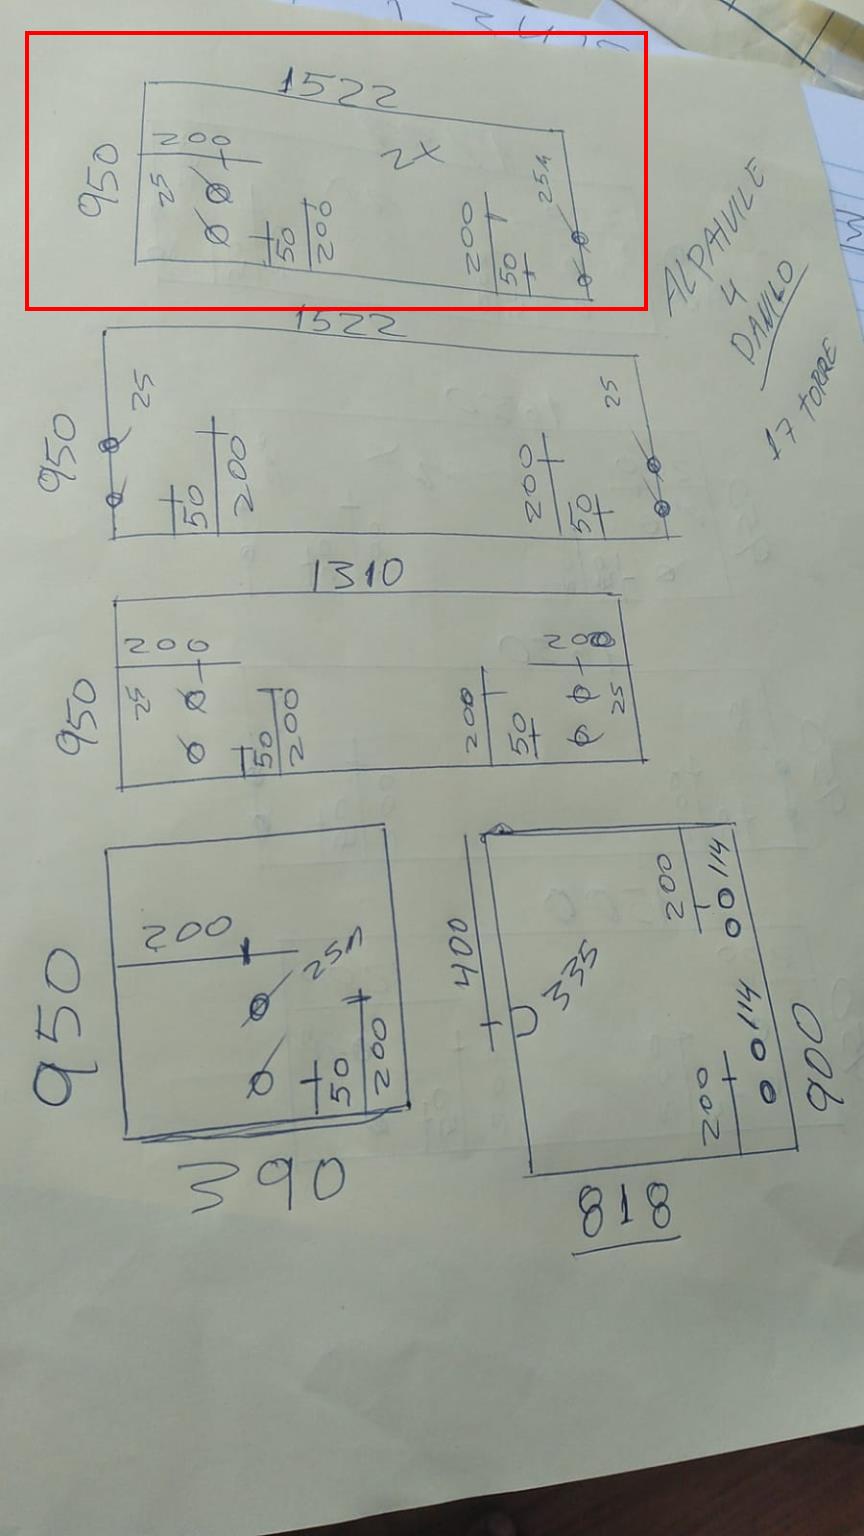 1522
950
200
2X
25
25n
50
200
200
50
ALPAIVILE
4
DANILO
17 TORRE
1522
950
25
25
50
200
200
50
1310
950
200
200
25
25
50
200
200
50
950
200
25n
50
200
390
400
335
200
114
114
200
900
818